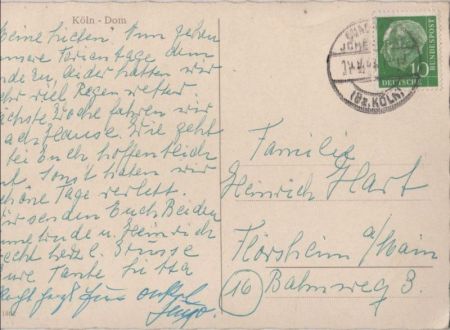 Köln - Dom
Meine Lieben! Nun gehen
unsere Ferientage dem
Ende zu, leider hatten wir
sehr viel Regenwetter.
Nächste Woche fahren wir
nach Hause. Wie geht
bei Euch hoffentlich
gut. Sonst haben wir
schöne Tage verlebt.
Wir senden Euch Beiden
u. Heinrich
recht herzl. Grüsse
Eure Tante
Onkel
(Bz. KÖLN)
DEUTSCHE BUNDESPOST
10
Familie
Heinrich Hart
Flörsheim a/Main
16 Bahnweg 3.